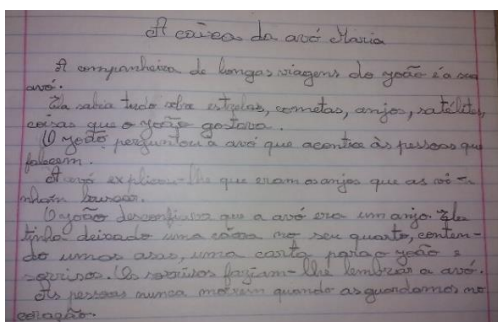 A caixa da avó Maria
A companheira de longas viagens do João é a sua
avó.
Ela sabia tudo sobre estrelas, cometas, anjos, satélites,
coisas que o João gostava.
O João perguntou a avó que acontece às pessoas que
falecem.
A avó explicou-lhe que eram os anjos que as vi-
nham buscar.
O João desconfiava que a avó era um anjo. Ela
tinha deixado uma caixa no seu quarto, conten-
do umas asas, uma carta para o João e
sorrisos. Os sorrisos faziam-lhe lembrar a avó.
As pessoas nunca morrem quando as guardamos no
coração.